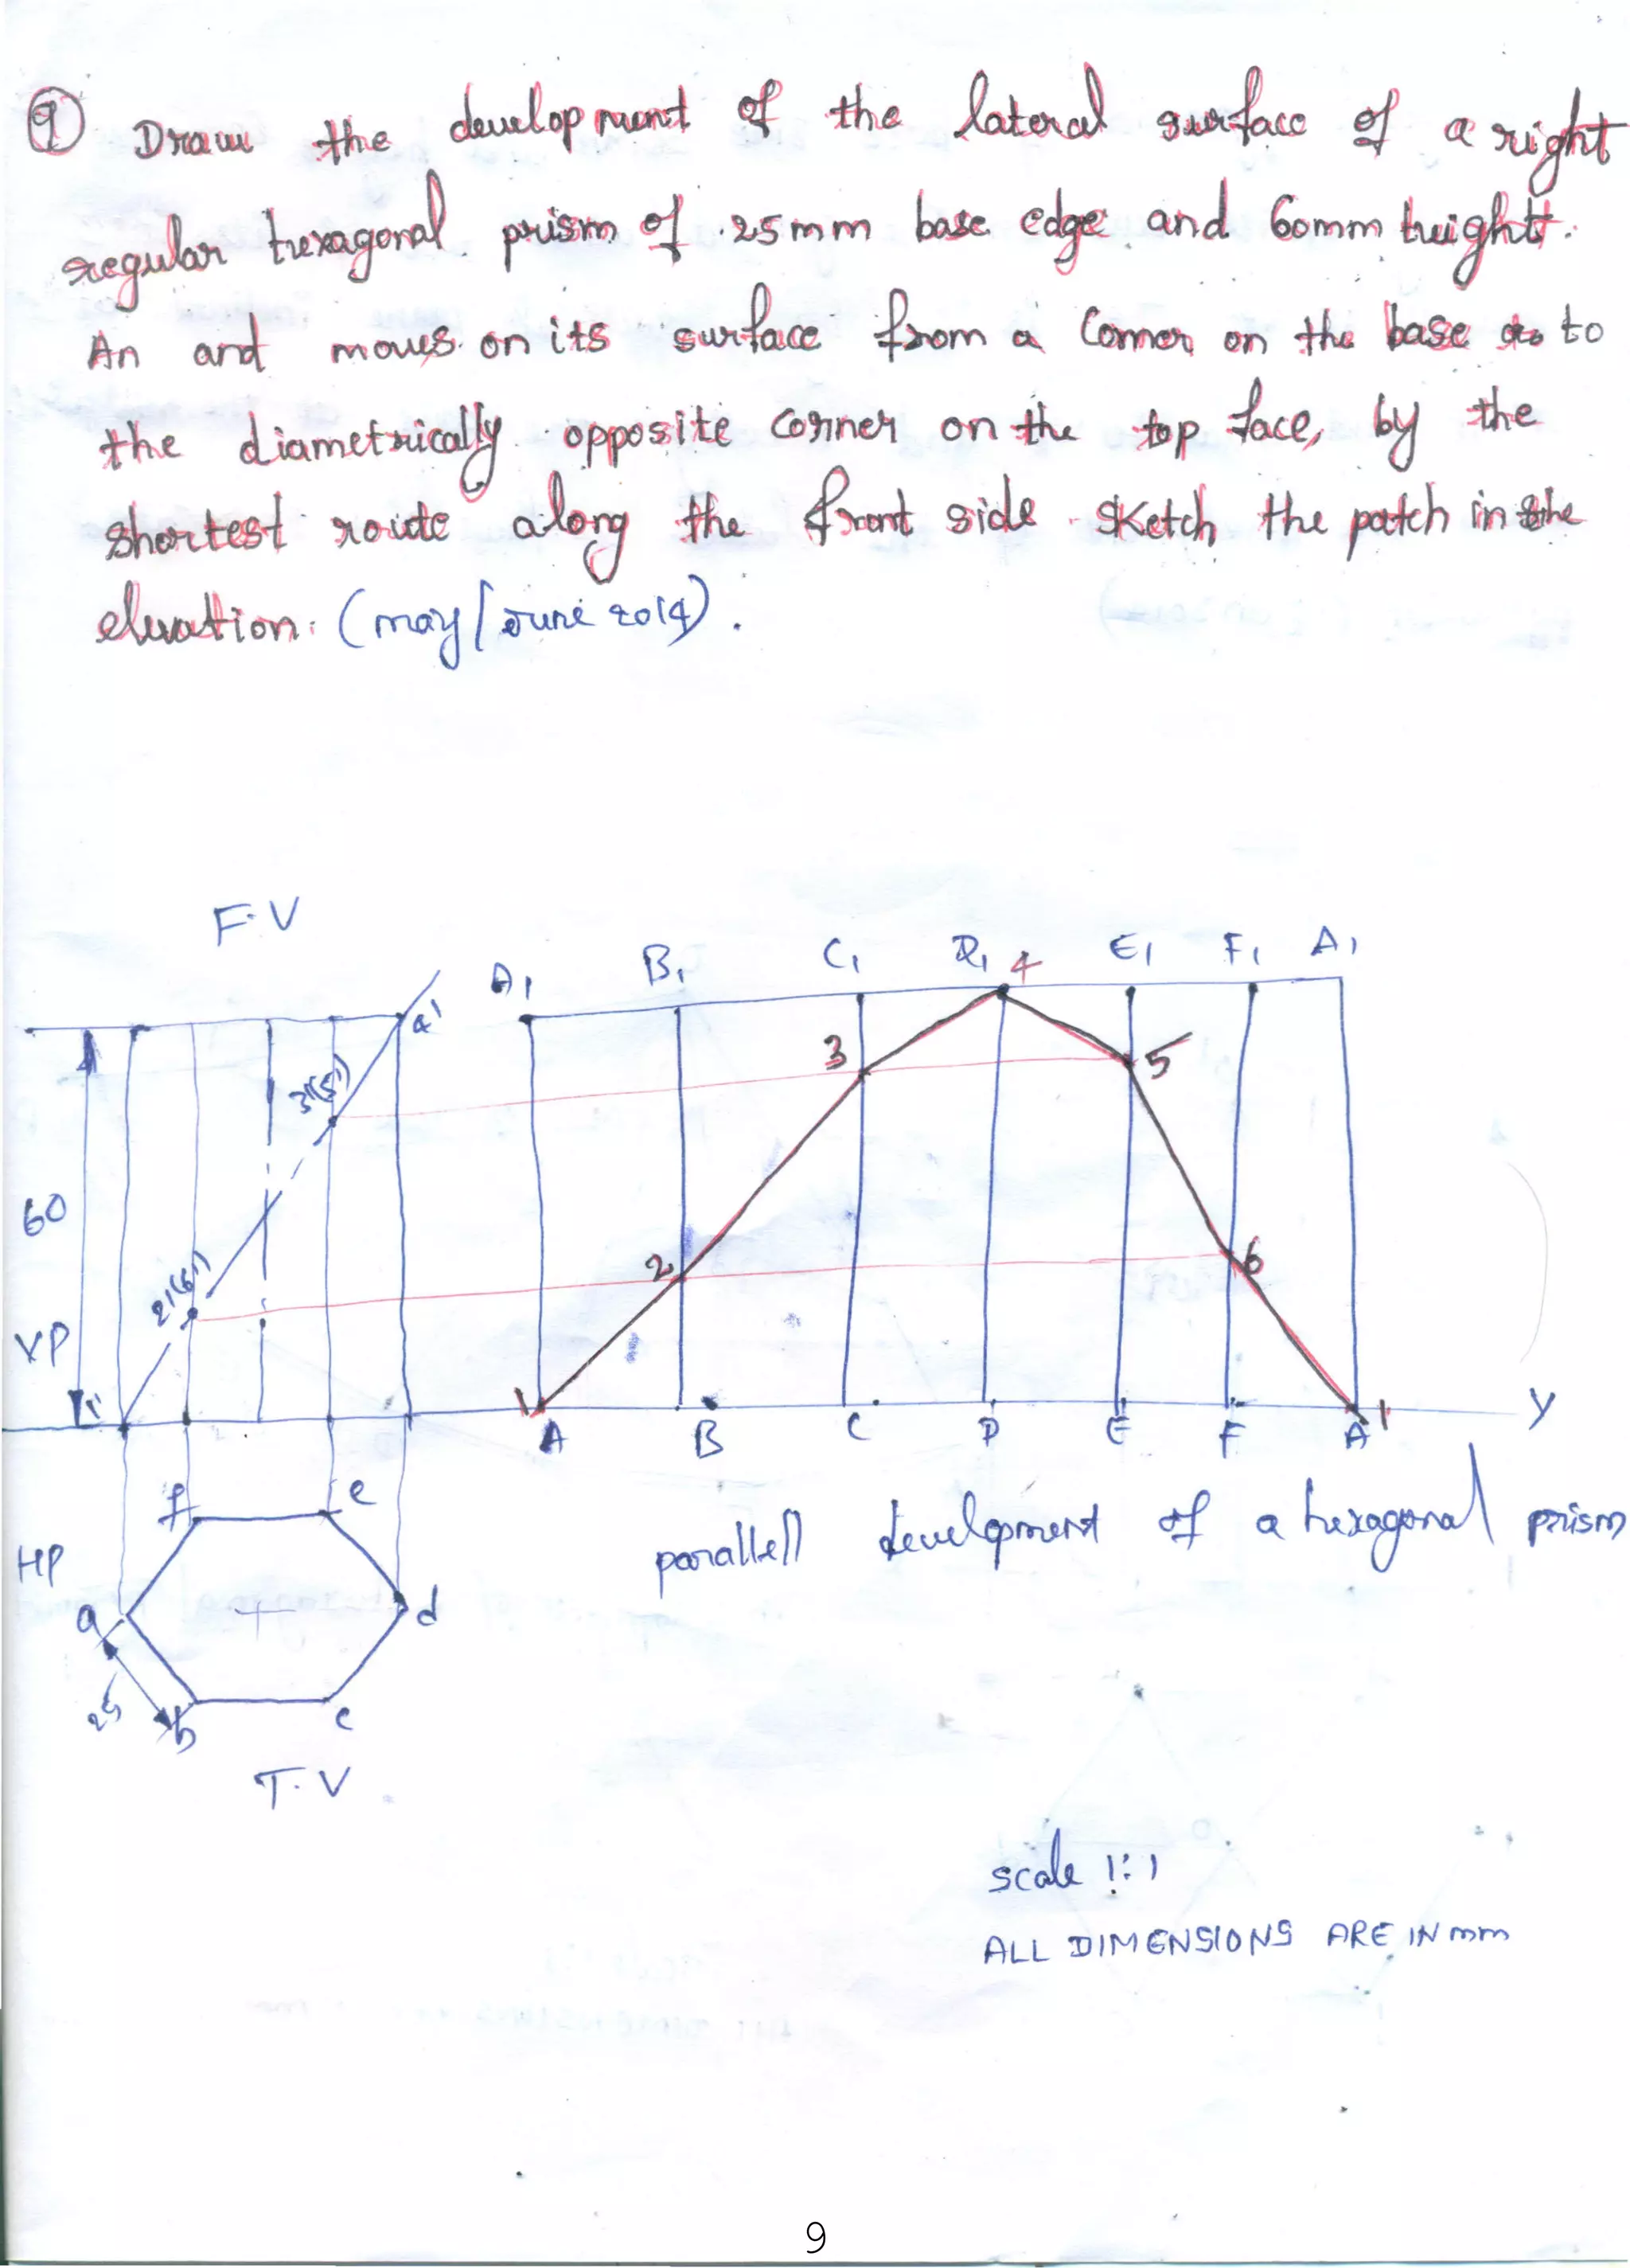 9 Draw the development of the lateral surface of a right
regular hexagonal prism of 25mm base edge and 60mm height.
An and moves on its surface from a corner on the base to
the diametrically opposite corner on the top face, by the
shortest route along the front side sketch the patch in the
elevation. (may/June 2014).
F.V
A1 B1 C1 D1 4 E1 F1 A1
4'
3'(5')
3 5
60
2'(6')
2 6
VP
1'
1 A B C D E F A 1 Y
f e
HP
a d
25
b c
T.V
parallell development of a hexagonal prism
scale 1:1
ALL DIMENSIONS ARE IN mm
9